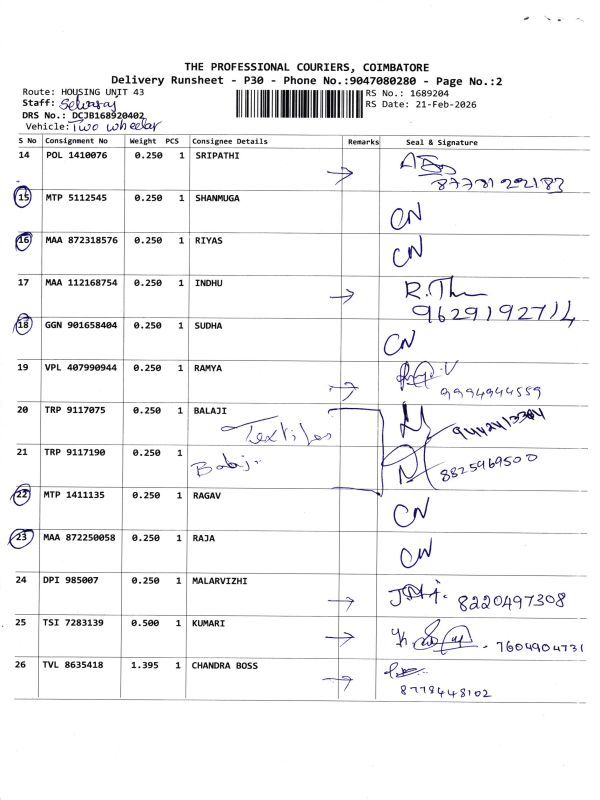 THE PROFESSIONAL COURIERS, COIMBATORE
Delivery Runsheet - P30 - Phone No.:9047080280 - Page No.:2
Route: HOUSING UNIT 43 RS No.: 1689204
Staff: Selvaraj RS Date: 21-Feb-2026
DRS No.: DCJB168920402
Vehicle: Two wheeler
S No Consignment No Weight PCS Consignee Details Remarks Seal & Signature
14 POL 1410076 0.250 1 SRIPATHI
15 MTP 5112545 0.250 1 SHANMUGA CN
16 MAA 872318576 0.250 1 RIYAS CN
17 MAA 112168754 0.250 1 INDHU
18 GGN 901658404 0.250 1 SUDHA CN
19 VPL 407990944 0.250 1 RAMYA 9994944559
20 TRP 9117075 0.250 1 BALAJI
Textiles
21 TRP 9117190 0.250 1 8825969500
22 MTP 1411135 0.250 1 RAGAV CN
23 MAA 872250058 0.250 1 RAJA CN
24 DPI 985007 0.250 1 MALARVIZHI 8220497308
25 TSI 7283139 0.500 1 KUMARI 7604904731
26 TVL 8635418 1.395 1 CHANDRA BOSS 8778448102